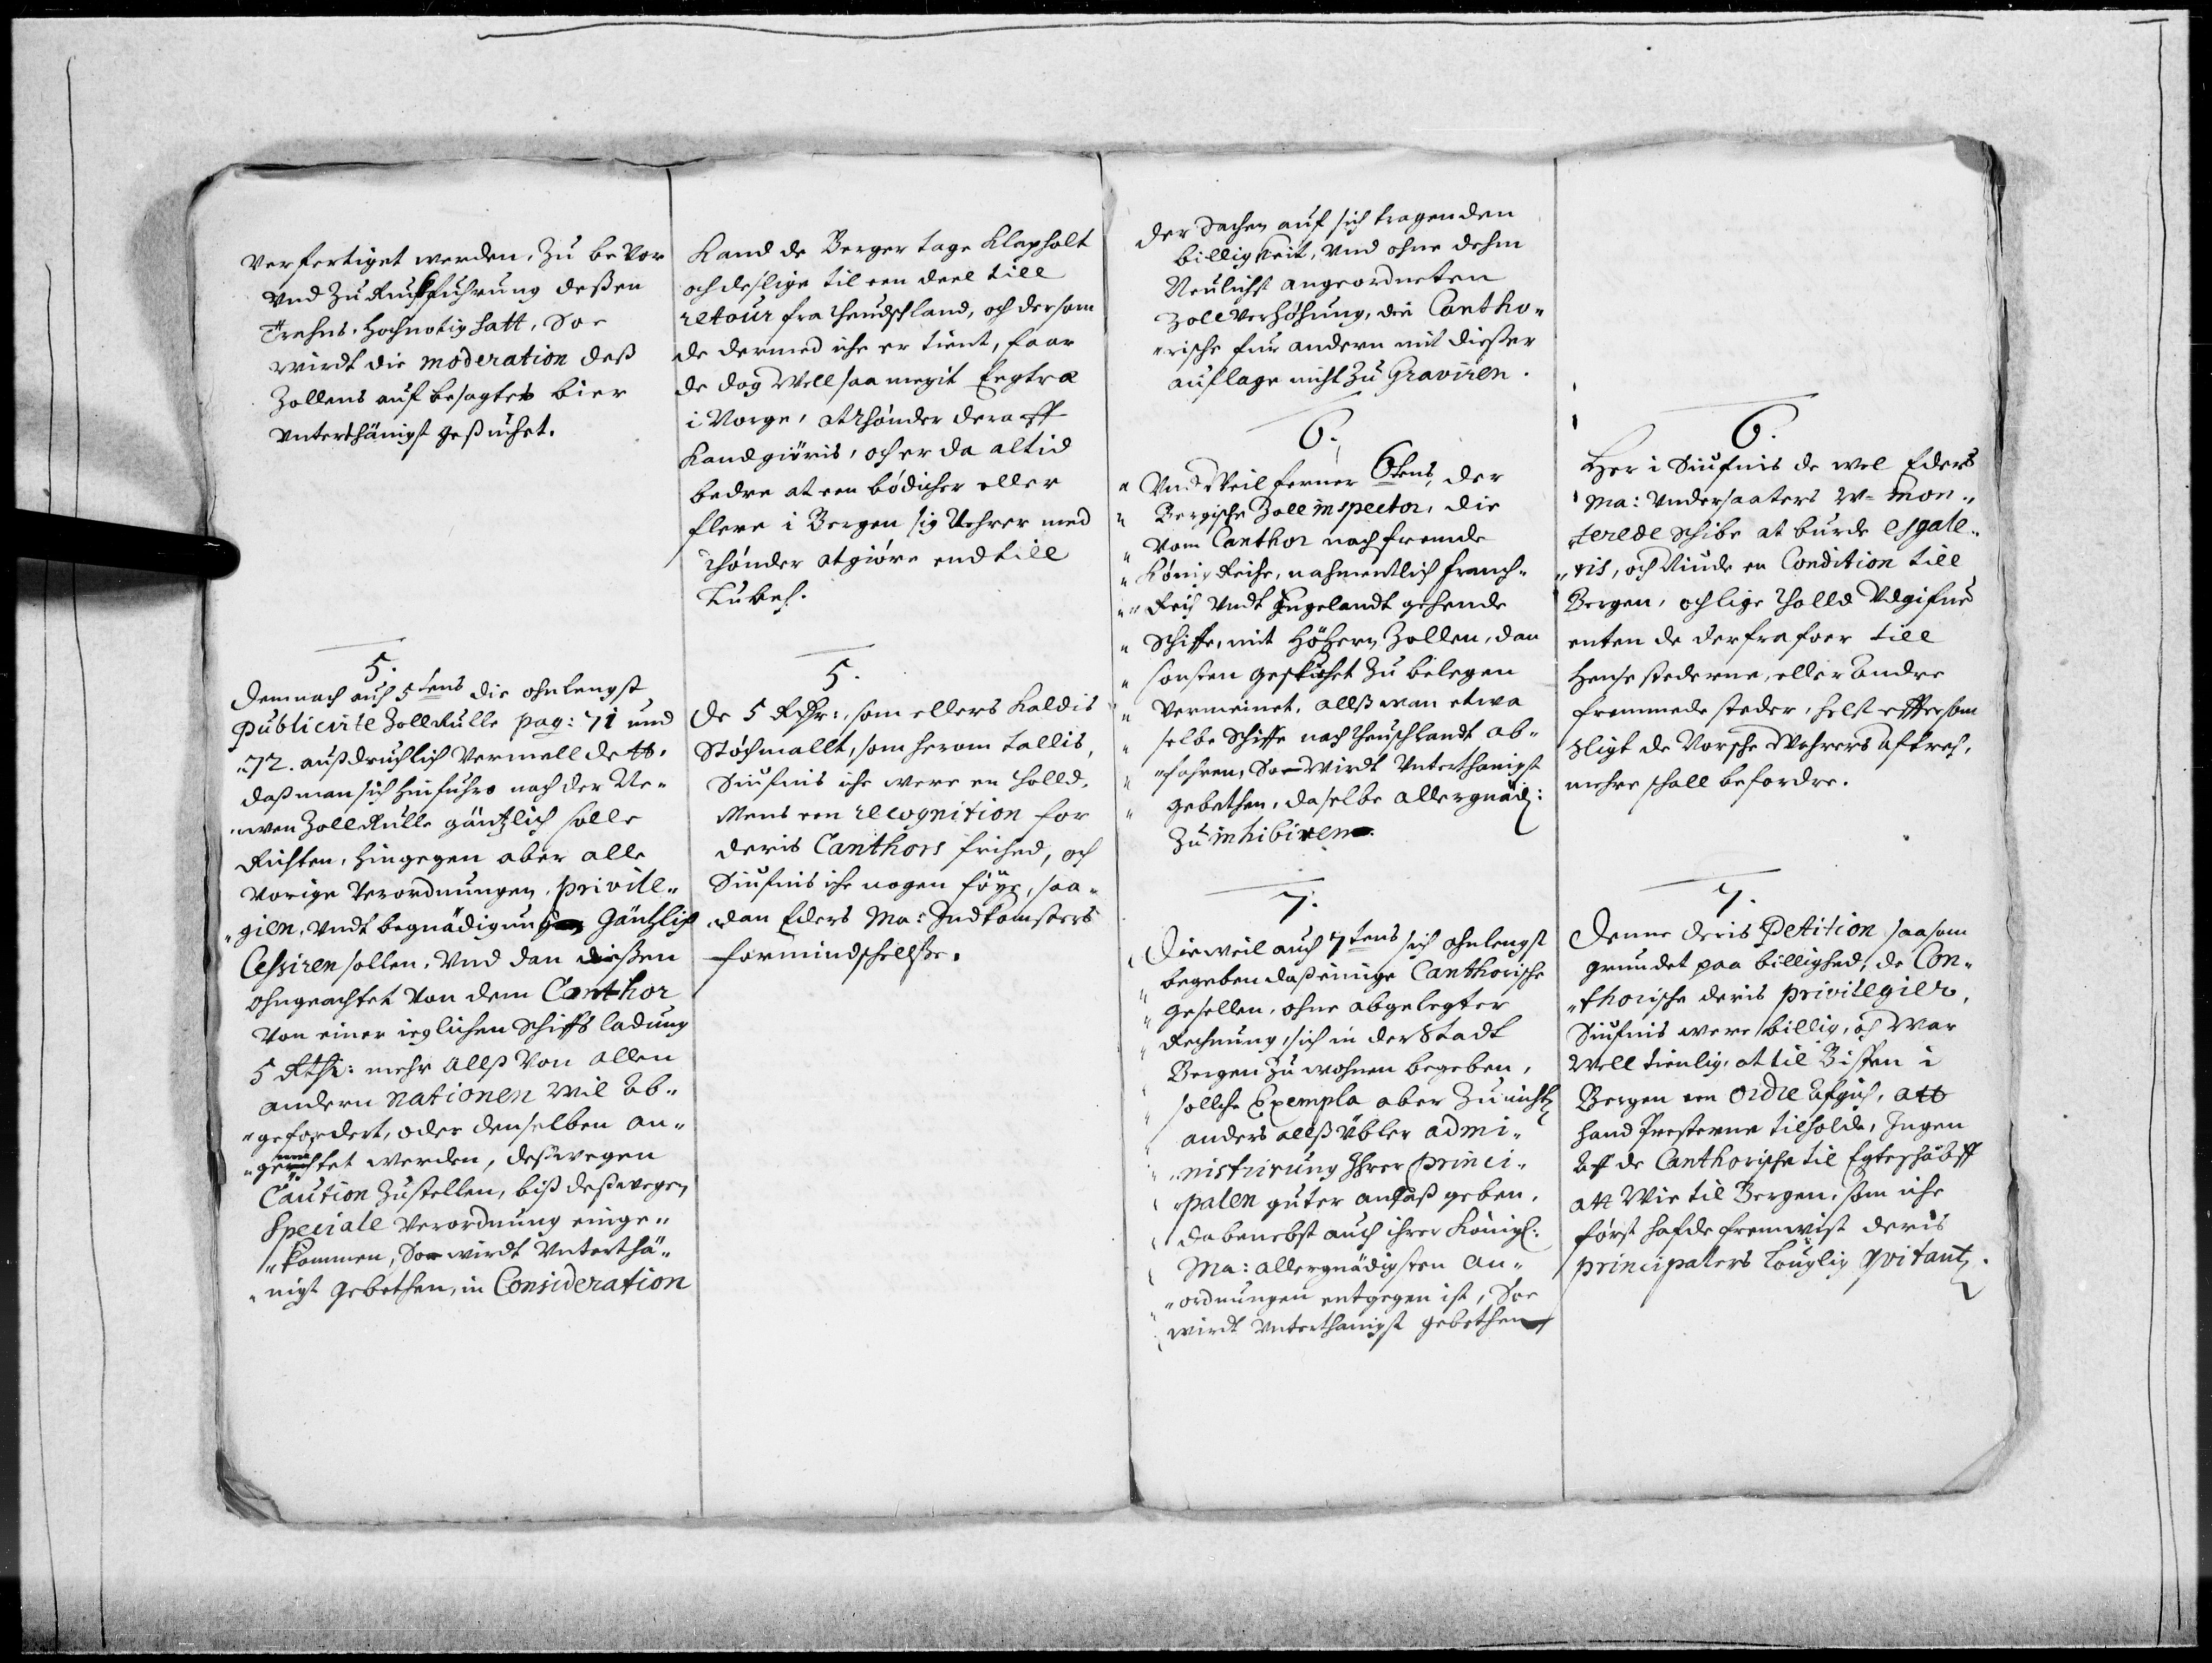 Verfertiget werden, Zu bevor
Vnd Zu Ruckfuhrung deßen
Trehns, Hochnotig hatt, Soe
wirdt die moderation deß
Zollens auf besagtes bier
Unterthänigst geßuchet.
5.
Demnach auch 5tens die ohnlengst
Publicirte Zoll Rulle pag: 71 und
72. außdruchlich Vermelldett,
daß man sich hinfuhro nach der Ne„
„wen Zoll Rulle gäntzlich solle
Richten, hingegen aber alle
Vorige Verordnungen, privile„
„gien, Undt begnädigungen Gäntzlich
Cessiren sollen, Vnd dan dießen
ohngeachtet Von dem Canthor
Von einer ieglichen Schiffs ladung
5 Rthr: mehr alls Von allen
andern Nationen Wil Ab„
„gefordert, oder denselben an„
werden, deßwegen
Caution Zustellen, biß deßwegen
Speciale Verordnung einge„
„kommen, Soe wirdt Unterthä„
„nigst gebethen, in Consideration
Kand de Berger tage Klapholt
och deslige til een deel till
retour fra theudschland, och dersom
de dermed iche er tient, faar
de dog Well saa megit Eegtræ
i Norge, at thönder der aff
Kand giöris, och er da altid
bedre at een bödicher eller
flere i Bergen sig Nehrer med
thönder at giöre end till
Lubech.
5.
De 5 Rdr:, som ellers Kaldis
Stöchmallt, som herom tallis,
Siufnis iche were en Tolld,
Mens een recognition for
deris Canthors frihed, och
Siufnis iche nogen föye, saa„
„dan Eders Ma: Indkomsters
formindschellße.
der Sachen auf sich tragenden
billigkeit, Vnd ohne dehm
Neulichst angeordneten
Zoll Verhöhung, die Cantho„
„rische fur andern mit dießer
auflage nicht Zu Graviren.
6.
Vnd Weil ferner 6tens, der
Bergische Zoll inspector, die
Vom Canthor nach fremde
König Reiche, nahmentlich franch„
„Reich Vndt Engelandt gehende
Schiffe, mit Höhern Zollen, dan
sonsten Zu belegen
Vermeinet, allß wan etwa
selbe Schiffe nach theuschlandt ab„
„fahren, Soe Wirdt Unterthanigst
gebethen, daselbe allergnäd:
Zu inhibiren.
7.
Dieweil auch 7tens sich ohnlengst
begeben daß einige Canthorische
gesellen, ohne abgelegter
Rechnung, sich in der Stadt
Bergen Zu wohnen begeben,
sollche Exempla aber Zu nichtz
anders allß übler admi„
„nistrirung Ihrer princi„
„palen guter anlaß geben,
dabenebst auch ihrer Königl:
Ma: allergnädigsten an„
„ordnungen entgegen ist, Soe
wirdt Unterthanigst gebethen
6.
Her i Siufnis de wel Eders
Ma: Undersaaters w= mon„
„terede Schibe at burde esgale„
„ris, och Niude en Condition till
Bergen, och lige Tolld Udgifne
enten de derfra foer till
Hense stederne, eller andre
fremmede steder, helst efftersom
sligt de Norsche Wahrers aftrech,
mehre schall befordre.
7.
Denne deris Petition saasom
grundet paa billighed, de Con„
„thorische deris privilegier,
Siufnis were billig, och War
Well tienlig, at til Bispen i
Bergen een Ordre afgich, att
hand Presterne tilholde, Ingen
Aff de Canthorische til Egteschabff
att Wie til Bergen, som iche
först hafde fremwist deris
principalers louglig qvitantz.